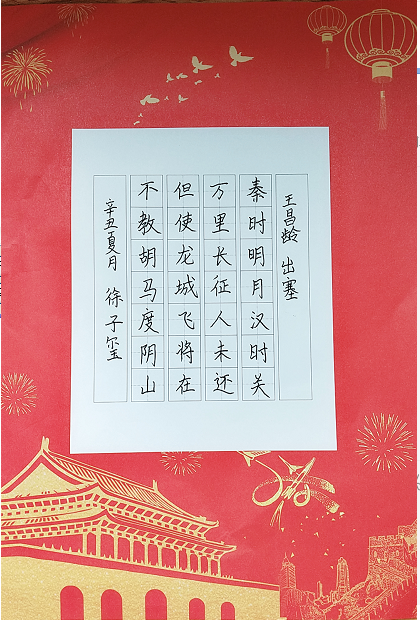 王昌龄 出塞
秦时明月汉时关
万里长征人未还
但使龙城飞将在
不教胡马度阴山
辛丑夏月 徐子玺